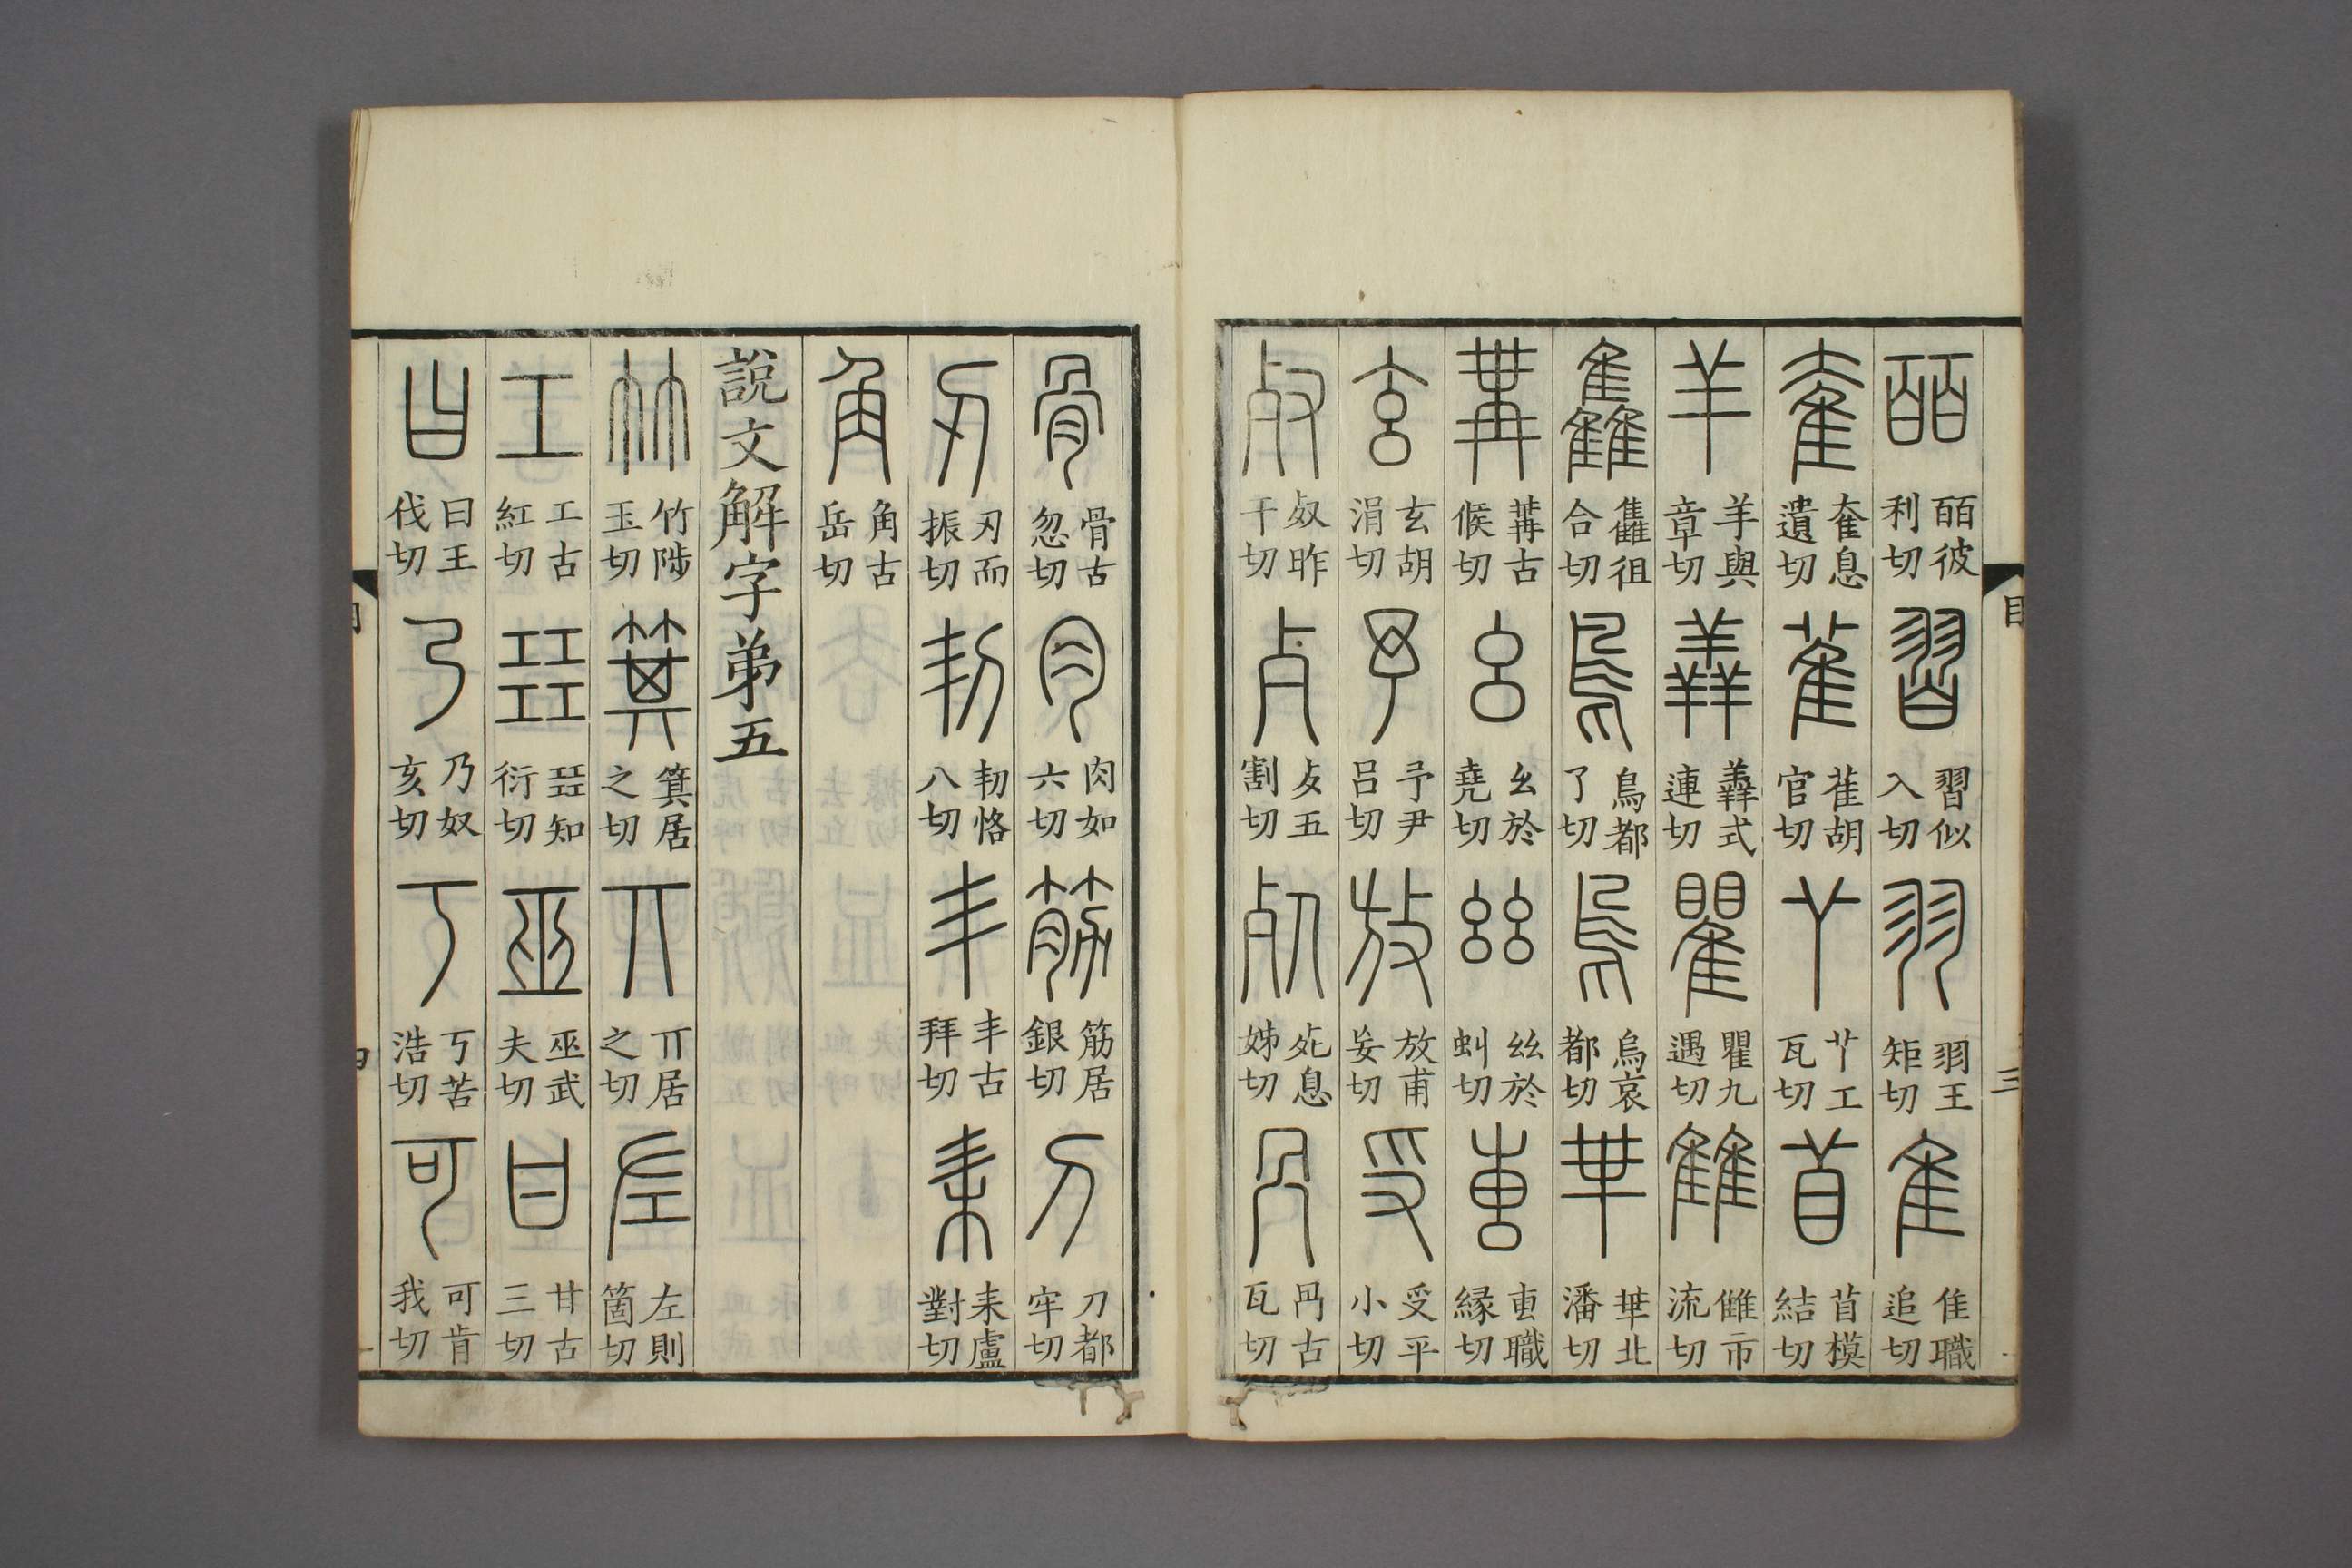 皕 皕彼利切 習 習似入切 羽 羽王矩切 隹 隹職追切
奞 奞息遺切 雈 雈胡官切 𠁥 𠁥工瓦切 苜 苜模結切
羊 羊與章切 羴 羴式連切 瞿 瞿九遇切 雔 雔市流切
雥 雥徂合切 鳥 鳥都了切 烏 烏哀都切 𠦒 𠦒北潘切
冓 冓古候切 幺 幺於堯切 𢆶 𢆶於虯切 叀 叀職緣切
玄 玄胡涓切 予 予尹呂切 放 放甫妄切 𠬪 𠬪平小切
𣦼 𣦼昨干切 歺 歺五割切 死 死息姊切 冎 冎古瓦切
目 三
骨 骨古忽切 肉 肉如六切 筋 筋居銀切 刀 刀都牢切
刃 刃而振切 㓞 㓞恪八切 丯 丯古拜切 耒 耒盧對切
角 角古岳切
說文解字弟五
竹 竹陟玉切 箕 箕居之切 丌 丌居之切 左 左則箇切
工 工古紅切 㠭 㠭知衍切 巫 巫武夫切 甘 甘古三切
曰 曰王伐切 乃 乃奴亥切 丂 丂苦浩切 可 可肯我切